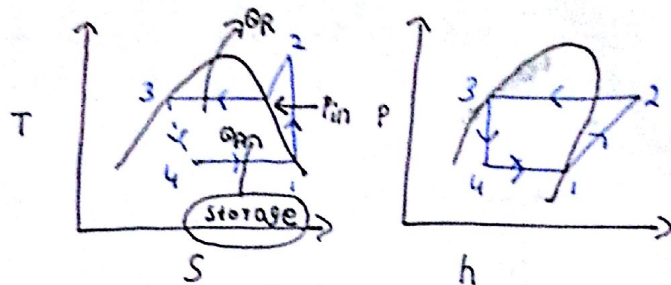 QR
2
3
Pin
T
QAn
4
1
storage
S
3
2
P
4
1
h